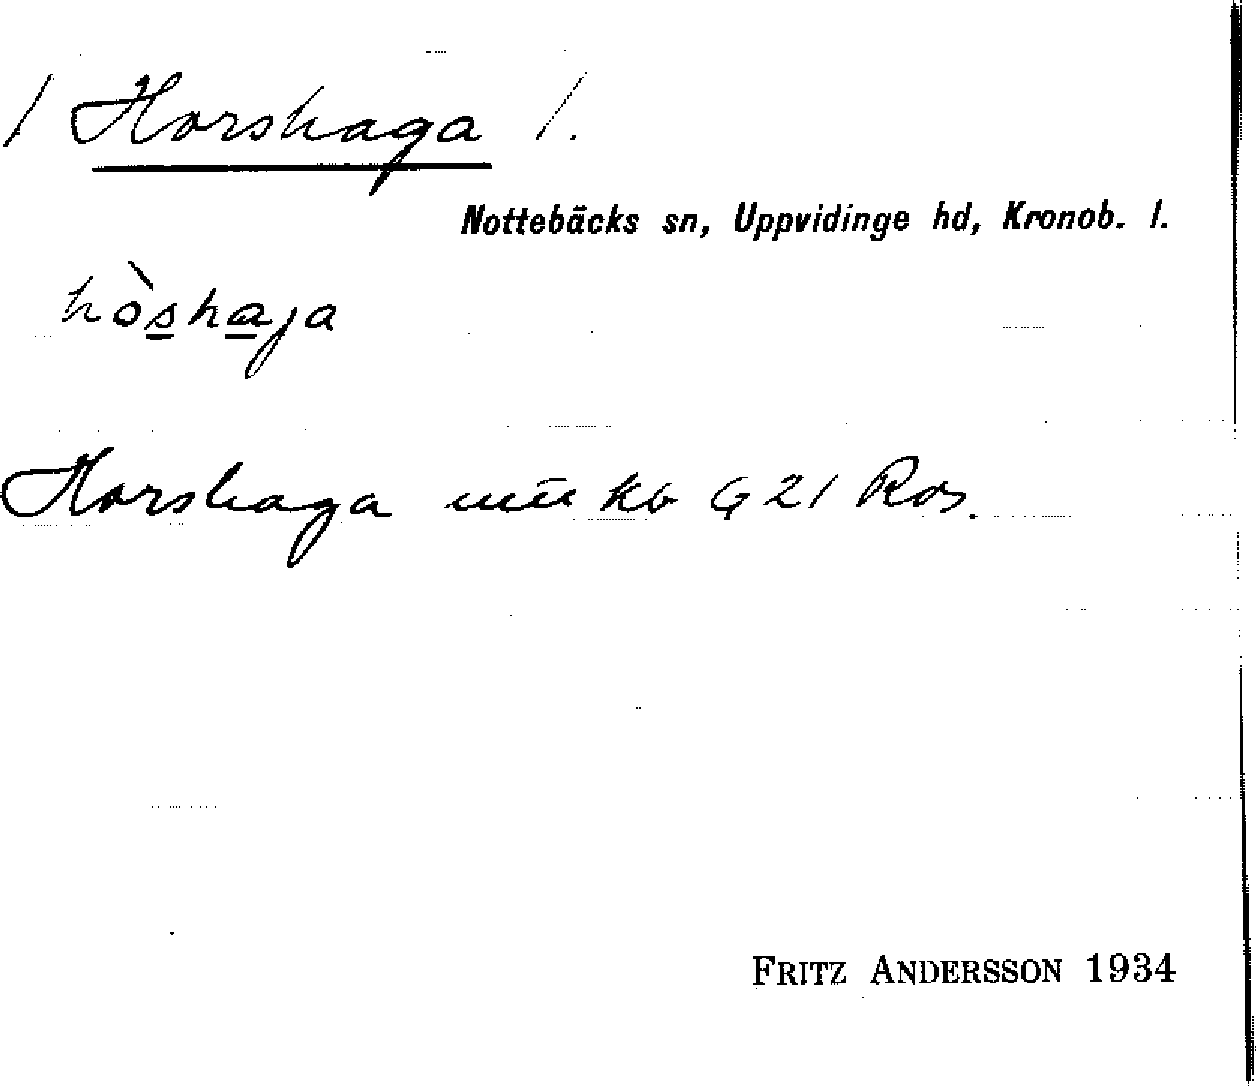 / Horshaga /.
Nottebäcks sn, Uppvidinge hd, Kronob. l.
hòshaja
Horshaga kb G21 Ros.
FRITZ ANDERSSON 1934